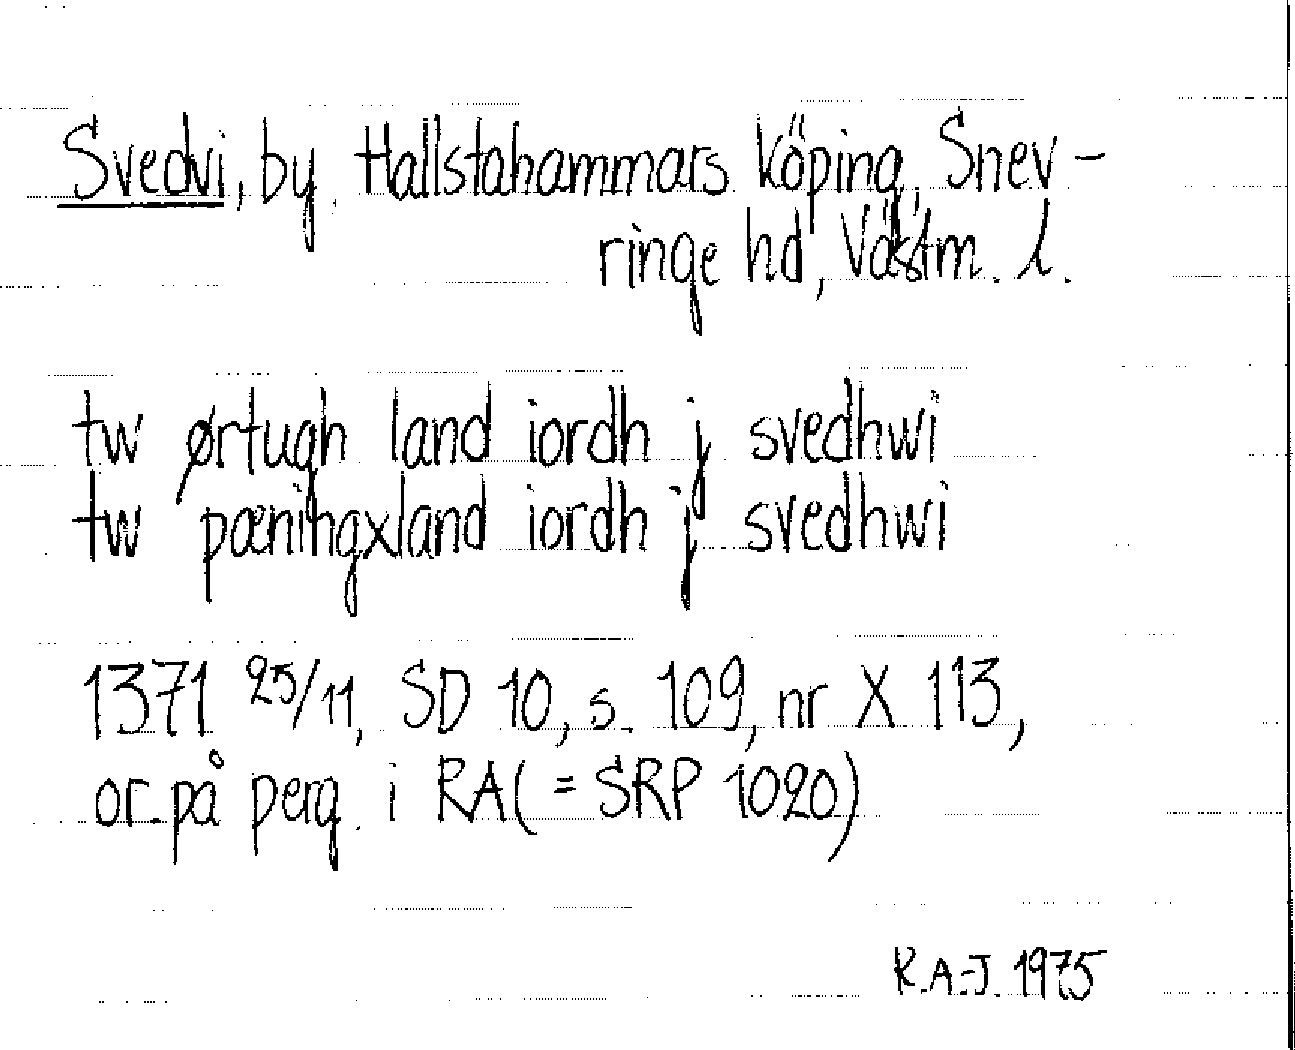 Svedvi, by, Hallstahammars köping, Snev-
ringe hd, Västm. l.
tw ørtugh land iordh j svedhwi
tw pæningxland iordh j svedhwi
1371 25/11, SD 10, s. 109, nr X 113,
or. på perg. i RA (= SRP 1020)
K.A-J. 1975